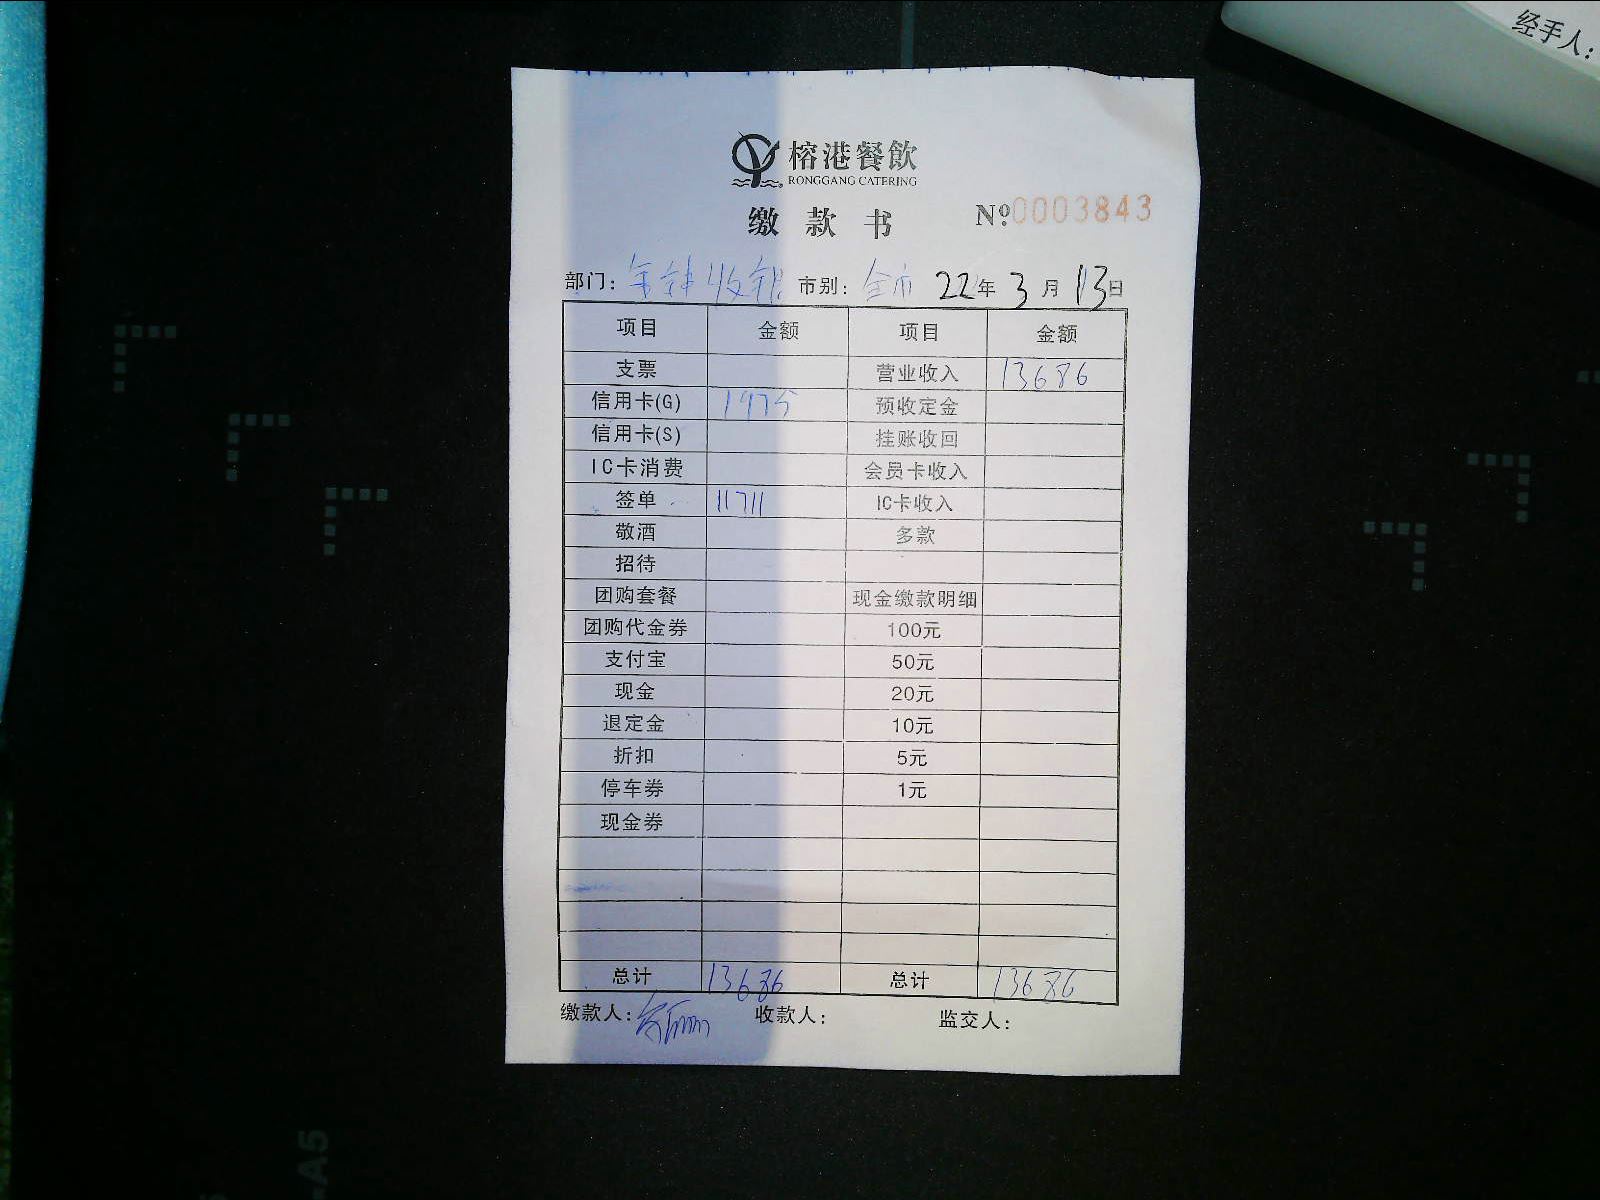 经手人:
榕港餐飲
RONGGANG CATERING
缴款书 Nº:0003843
部门: 收银 市别: 全市 22年3月13日
项目 金额 项目 金额
支票 营业收入 13686
信用卡(G) 1975 预收定金
信用卡(S) 挂账收回
IC卡消费 会员卡收入
签单 11711 IC卡收入
敬酒 多款
招待
团购套餐 现金缴款明细
团购代金券 100元
支付宝 50元
现金 20元
退定金 10元
折扣 5元
停车券 1元
现金券
总计 13686 总计 13686
缴款人: 收款人: 监交人:
-A5